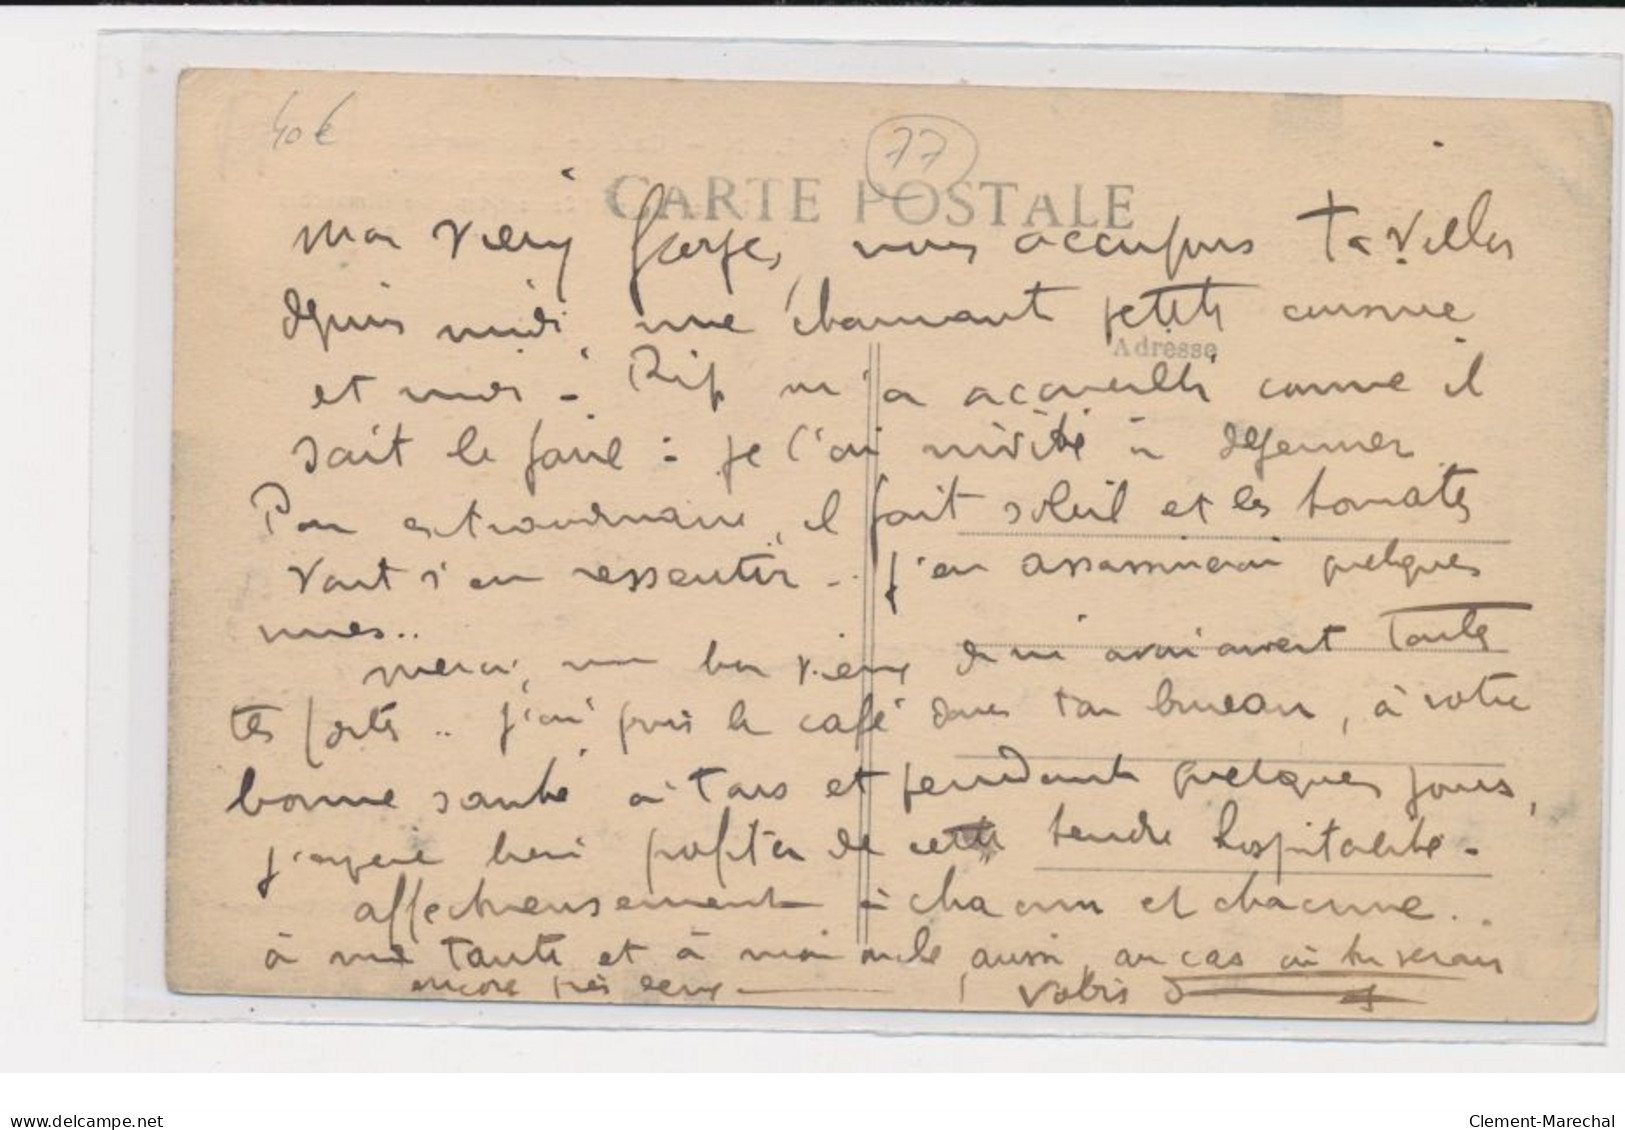 40€
77
CARTE POSTALE
Adresse
mon vieux George, nous occupons ta villa
depuis midi, une charmante petite cousine
et moi - Rip m'a accueilli comme il
sait le faire : je l'ai invité à déjeuner
Par extraordinaire, il fait soleil et les tomates
vont s'en ressentir .. j'en assassinerai quelques
unes ..
merci, mon bon vieux de m'avoir ouvert toutes
tes portes .. j'ai pris le café dans ton bureau, à votre
bonne santé à tous et pendant quelques jours,
j'espère bien profiter de cette tendre hospitalité -
affectueusement à chacun et chacune ..
à ma tante et à mon oncle, aussi, au cas où tu serais
encore près d'eux
delcampe.net
Clement-Marechal